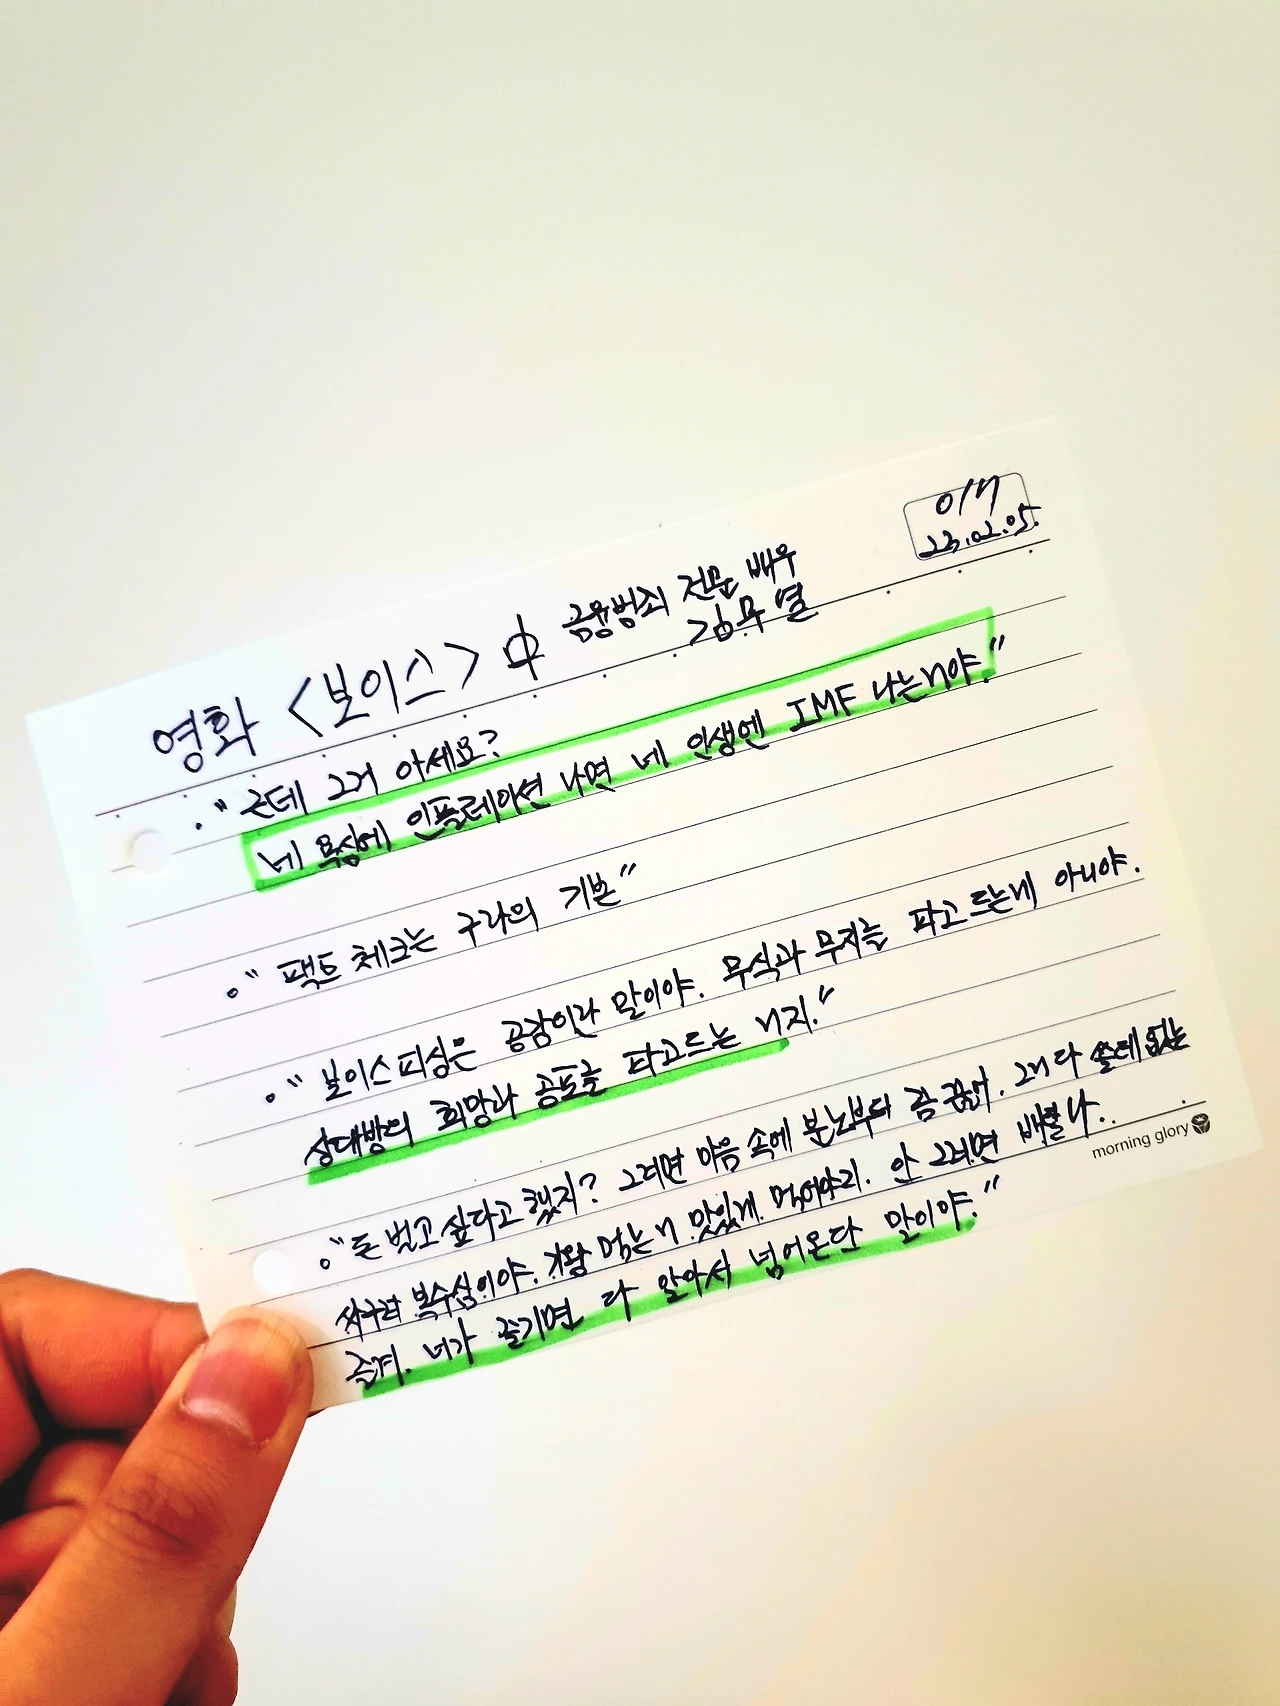 017
23.02.05.
영화 <보이스> 中
금융범죄 전문 배우
김무열
• "근데 그거 아세요?
네 욕심에 인플레이션 나면 네 인생엔 IMF 나는거야."
• "팩트 체크는 구라의 기본"
• "보이스피싱은 공감이란 말이야. 무식과 무지를 파고드는게 아니야.
상대방의 희망과 공포를 파고드는 거지."
• "돈 벌고 싶다고 했지? 그러면 마음 속에 분노부터 좀 꺼. 그거 다 쓸데없는
싸구려 복수심이야. 기왕 먹는거 맛있게 먹어야지. 안 그러면 배탈나.
즐겨. 너가 즐기면 다 알아서 넘어온단 말이야."
morning glory